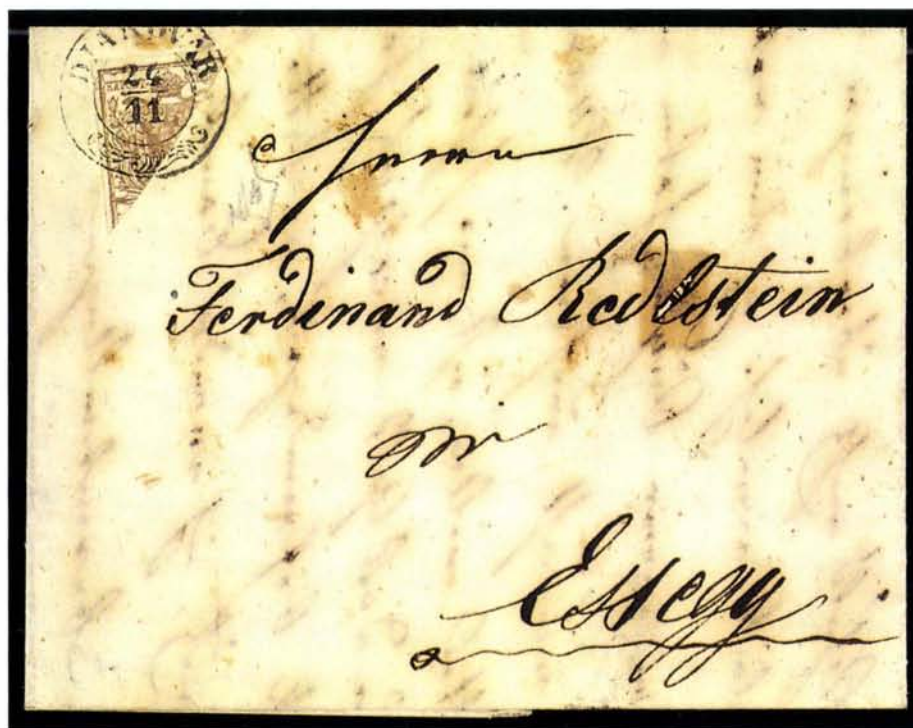 DIAKOVAR
24
11
Herrn
Ferdinand Redlstein
in
Essegg